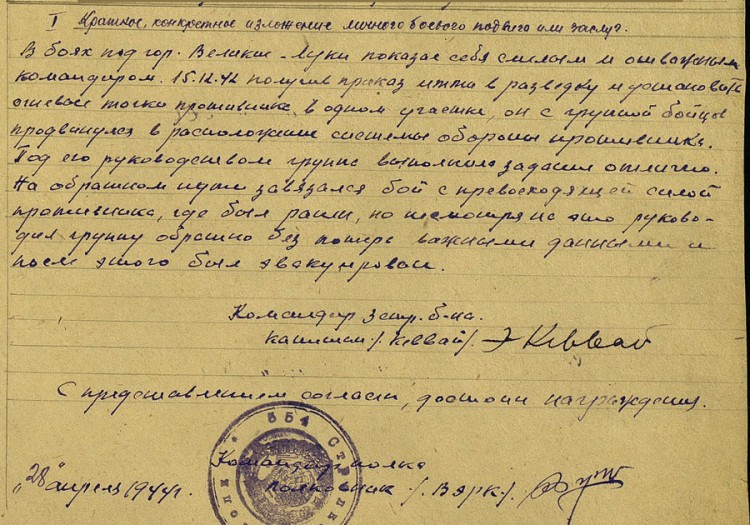 I Краткое, конкретное изложение личного боевого подвига или заслуг.
В боях под гор. Великие Луки показал себя смелым и отважным
командиром. 15.12.42 получив приказ итти в разведку и установить
огневые точки противника в одном участке, он с группой бойцов
продвинулся в расположение системы обороны противника.
Под его руководством группа выполнила задание отлично.
На обратном пути завязался бой с превосходящей силой
противника, где был ранен, но несмотря на это руково-
дил группу обратно без потерь важными данными и
после этого был эвакуирован.
Командир 3 стр. б-на.
капитан /. Кеввай/.
С представлением согласен, достоин награждения.
554 Стрелк
Командир полка
"28" апрель 1944 г. Полковник /. Вярк/.